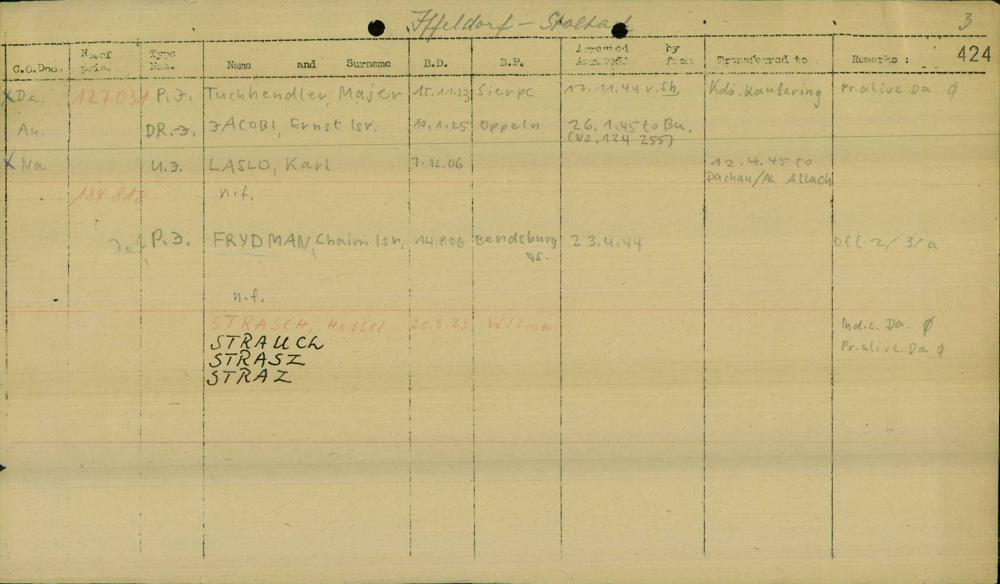 Iffeldorf – Staltach 3
C.C.Doc. No.of pris. Type Nat. Name and Surname B.D. B.P. Arrested by Arrived from Transferred to Remarks : 424
X Da. 127.031 P.J. Tuchhendler, Majer 15.11.23 Sierpc 17.11.44 v. Sh. Kdo. Kaufering Pr.alive Da. Ø
Au. DR.J. JACOBI, Ernst Isr. 10.1.25 Oppeln 26.1.45 to Bu.
(No. 124 255)
X Na. U.J. LASLO, Karl 7.12.06 12.4.45 to
Dachau/AL Allach
134 818 n.f.
P.J. FRYDMAN, Chaim Isr. 14.8.06 Bendsburg 23.4.44 OCC 2/3/a
n.f.
STRASCH, Hossel 20.5.23 Wilna Ind.c. Da. Ø
STRAUCH Pr.alive Da Ø
STRASZ
STRAZ